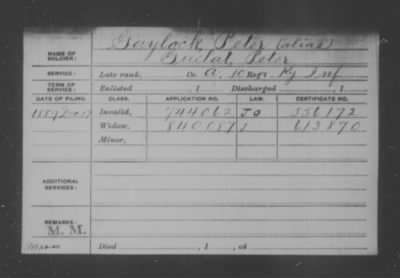 NAME OF SOLDIER: Gaylock, Peter (alias)
Guelat, Peter
SERVICE: Late rank, Co. A, 10 Reg't Ky Inf
TERM OF SERVICE: Enlisted , 1 Discharged , 1
DATE OF FILING. CLASS. APPLICATION NO. LAW. CERTIFICATE NO.
Invalid, 744062 556172
Widow, 613870
Minor,
ADDITIONAL SERVICES:
REMARKS:
M. M.
Died , 1 , at